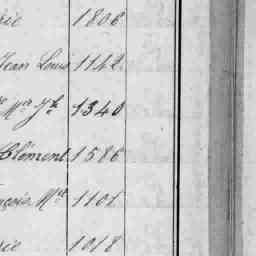 rie 1806
Jean Louis 1142
Mie Jh 1340
Clément 1586
nçois Mie 1101
rie 1018